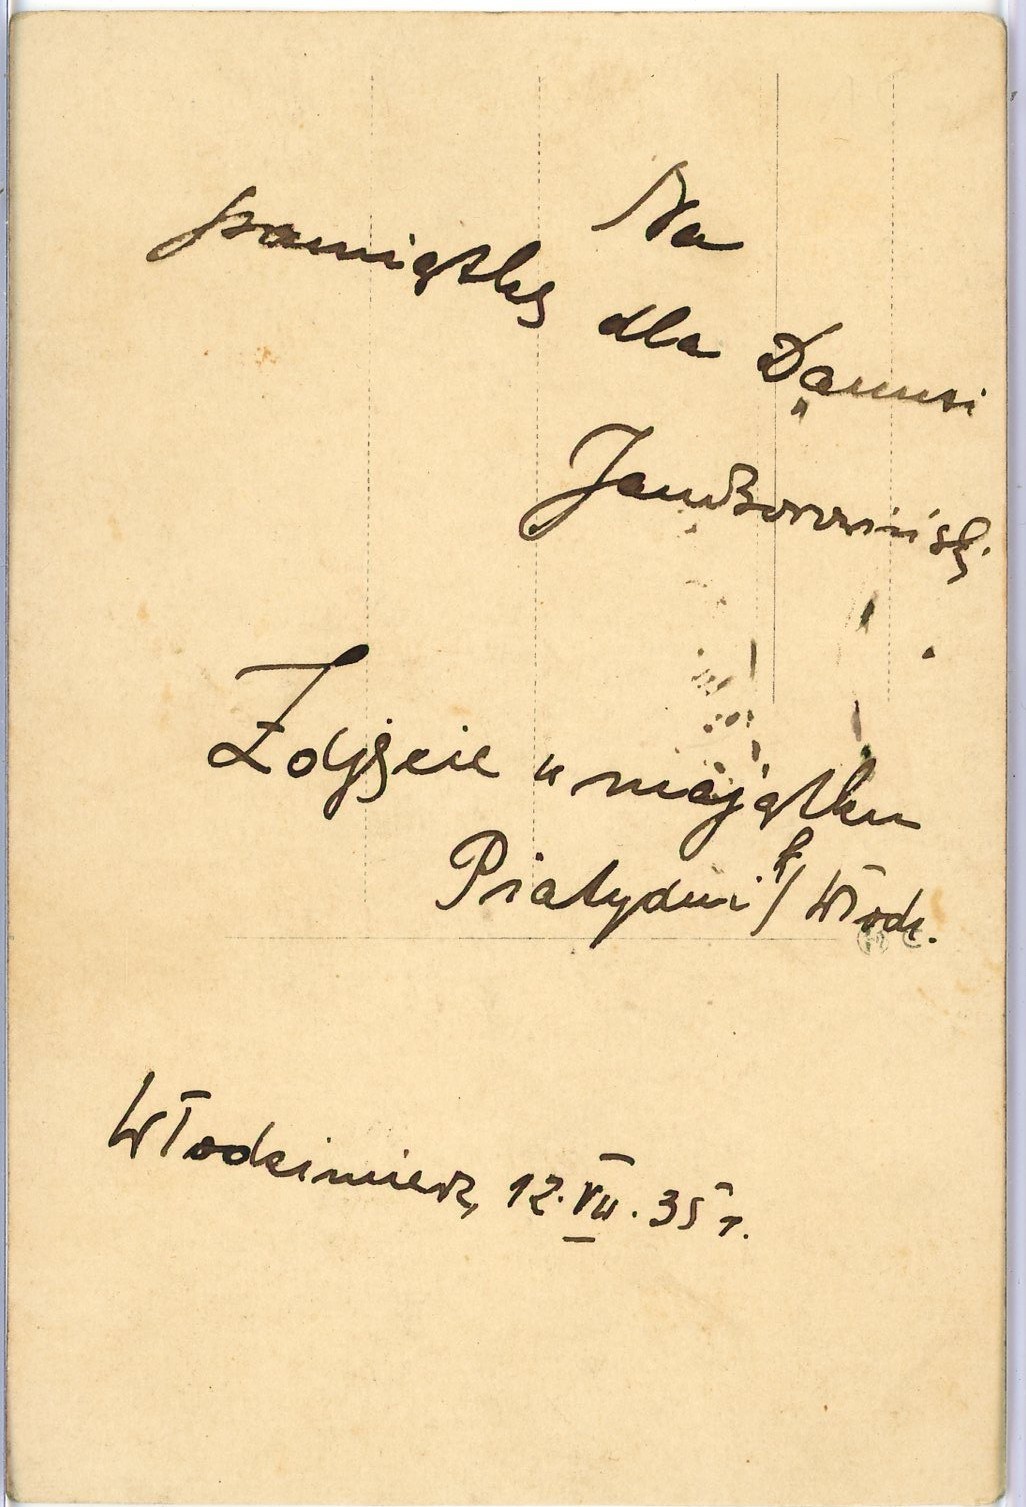 Na
pamiątkę dla Danusi
Jan Borowiński
Zdjęcie w majątku
Piatydni k/ Włodz.
Włodzimierz, 12.VII.35 r.